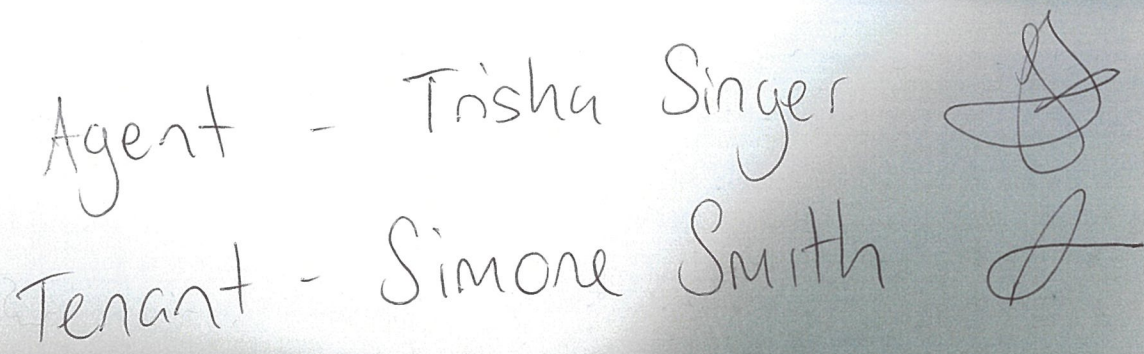 Agent - Trisha Singer
Tenant - Simone Smith